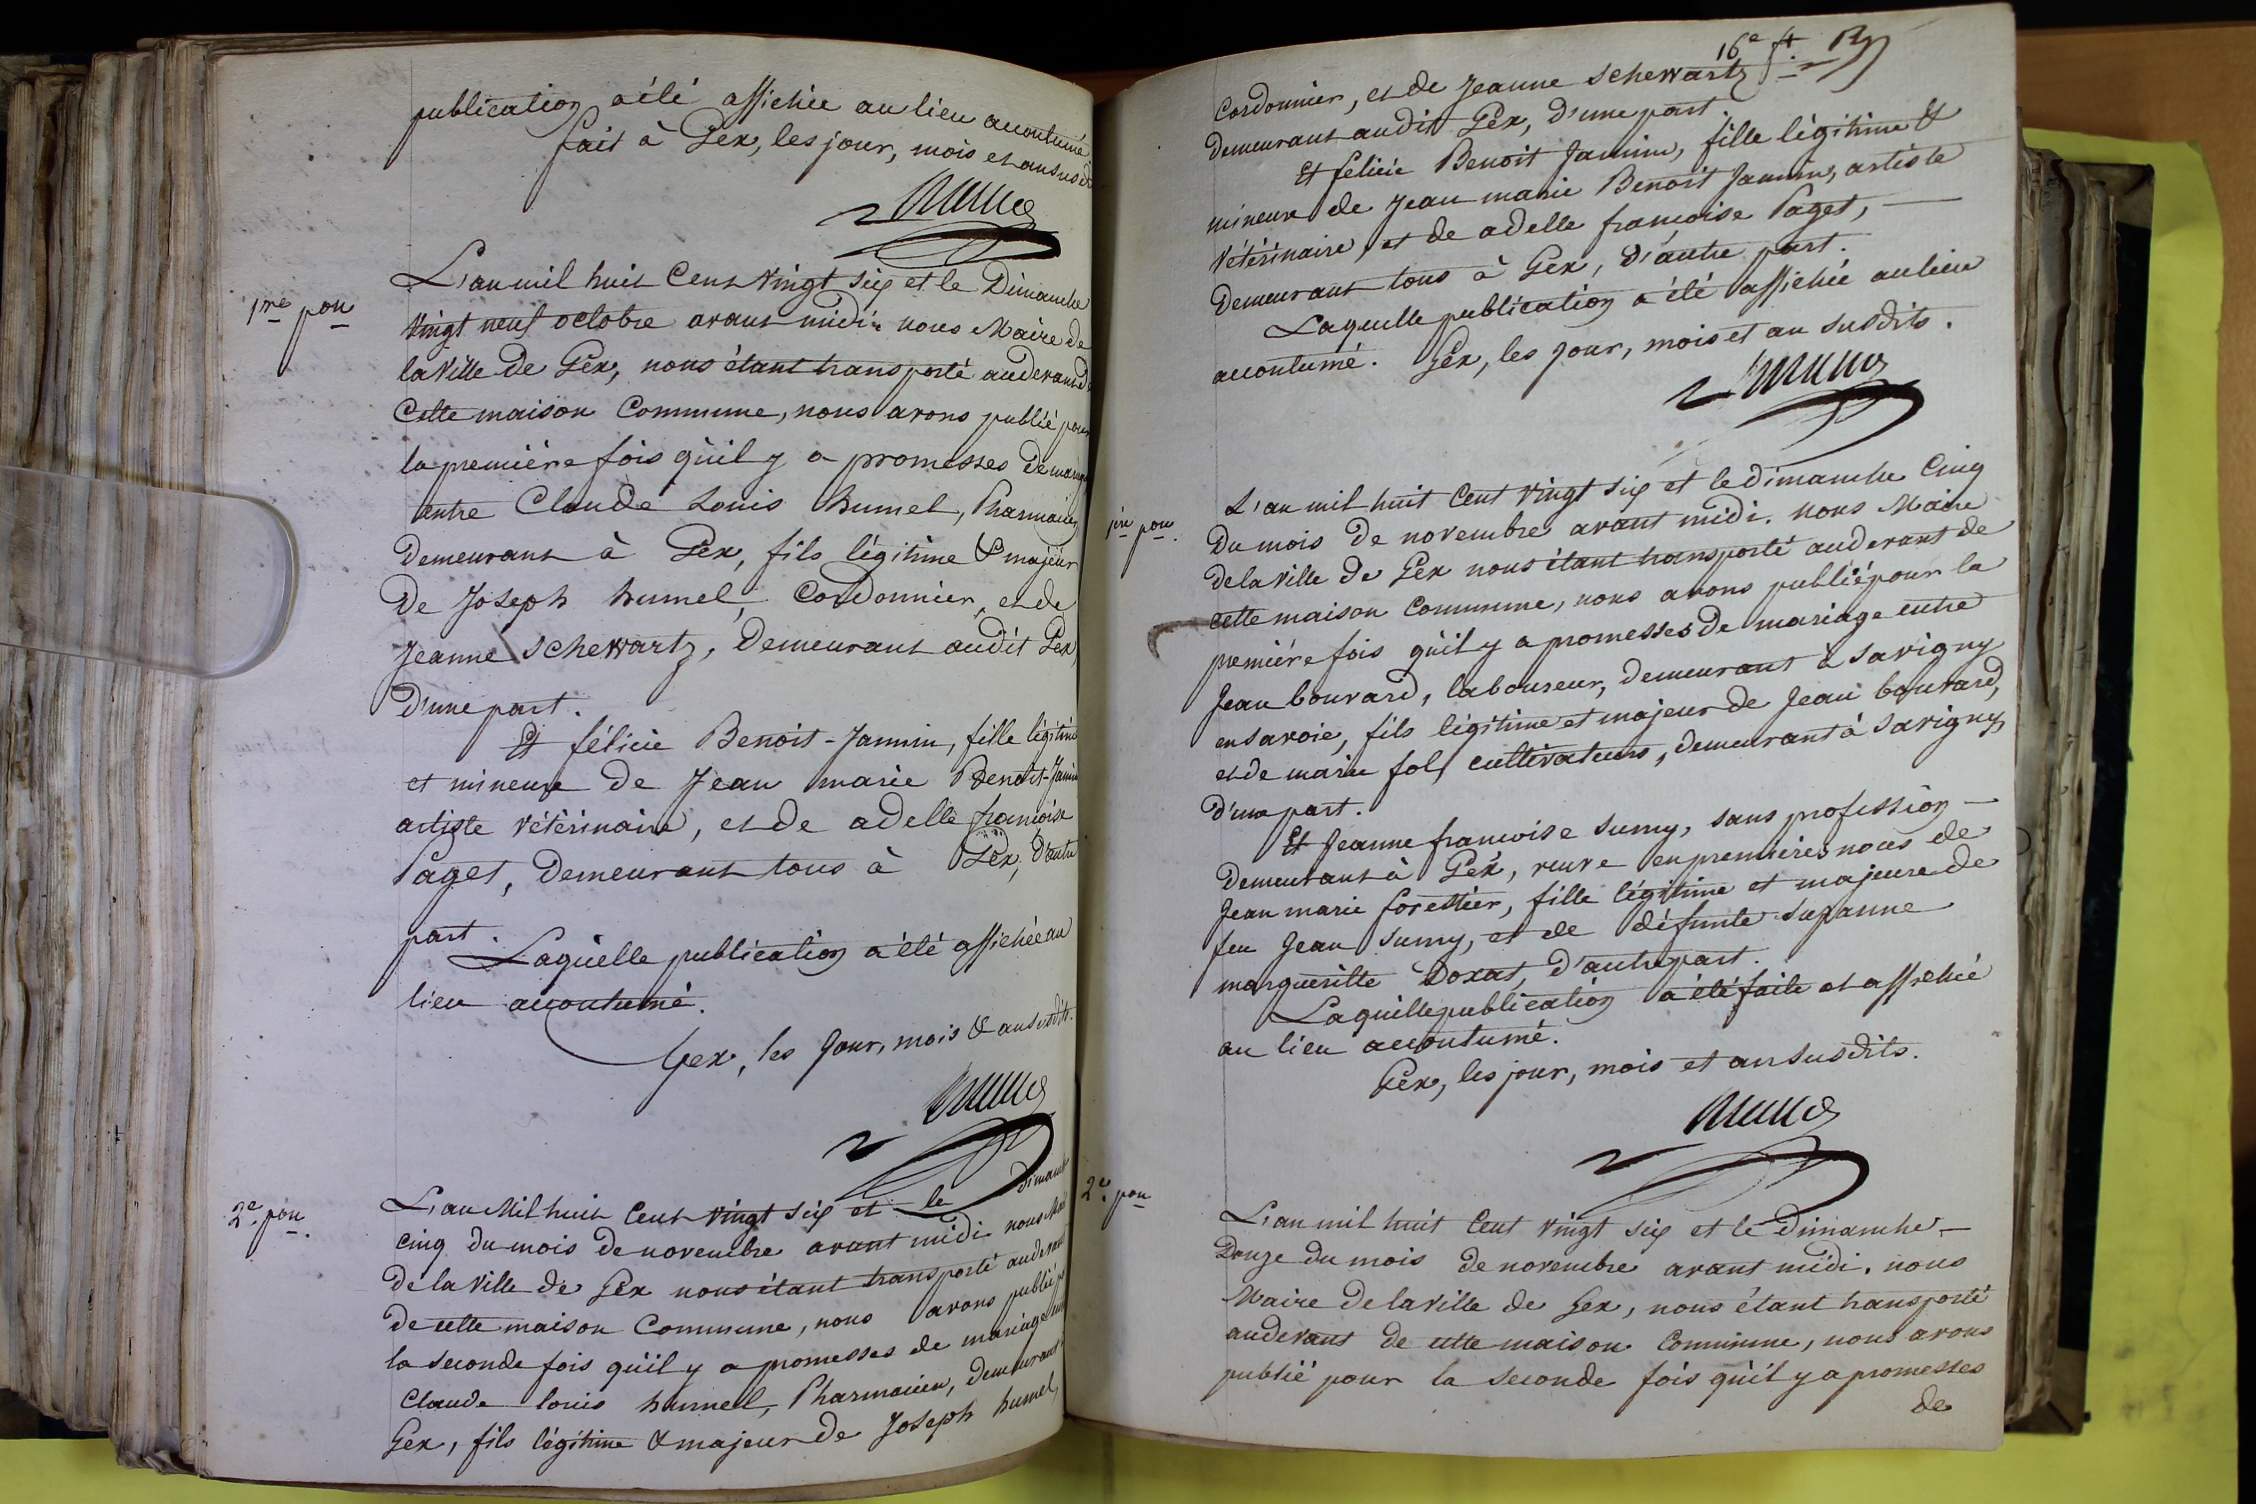 publication a été affichée au lieu accoutumé
fait à Gex, les jour, mois et an susdit
1re pon
L'an mil huit Cent vingt six et le Dimanche
vingt neuf octobre avant midi. nous Maire de
la Ville de Gex, nous étant transporté audevant de
Cette maison Commune, nous avons publié pour
la première fois qu'il y a promesses de mariage
entre Claude Louis humel, Pharmacien
demeurant à Gex, fils légitime & majeur
de Joseph humel, Cordonnier, et de
Jeanne Schewartz, Demeurant audit Gex,
D'une part.
Et félicie Benoit-Jannin, fille légitime
et mineure de Jean marie Benoit-Jannin
artiste vétérinaire, et de adelle françoise
Paget, Demeurant tous à Gex, d'autre
part.
Laquelle publication a été affichée au
lieu accoutumé.
Gex, les jour, mois & an susdits.
2e pon.
L'an Mil huit Cent vingt six et le dimanche
cinq du mois de novembre avant midi nous Maire
de la Ville de Gex nous étant transporté audevant
de cette maison Commune, nous avons publié
la seconde fois qu'il y a promesses de mariage
Claude louis hummel, Pharmacien, demeurant
Gex, fils légitime & majeur de Joseph humel,
16e ft
Cordonnier, et de Jeanne Schewartz
demeurant audit Gex, d'une part.
Et félicie Benoit Jannin, fille légitime &
mineure de Jean marie Benoit Jannin, artiste
Vétérinaire, et de adelle françoise Paget,
Demeurant tous à Gex, d'autre part.
Laquelle publication a été affichée au lieu
accoutumé. Gex, les jour, mois et an susdits.
1re pon.
L'an mil huit Cent vingt six et le dimanche Cinq
Du mois de novembre avant midi. nous Maire
de la ville de Gex nous étant transporté audevant de
cette maison Commune, nous avons publié pour la
première fois qu'il y a promesses de mariage entre
Jean bouvard, laboureur, demeurant à Savigny
en savoie, fils légitime et majeur de Jean bouvard,
et de marie fol, cultivateurs, demeurant à Savigny,
d'une part.
Et Jeanne francoise Sumy, sans profession
demeurant à Gex, veuve en premieres noces de
Jean marie forestier, fille légitime et majeure de
feu Jean Sumy, et de défunte Suzanne
margueritte Doxat, d'autre part.
Laquelle publication a été faite et affichée
au lieu accoutumé.
Gex, les jour, mois et an susdits.
2e. pon
L'an mil huit Cent vingt six et le Dimanche
Douze du mois de novembre avant midi. nous
Maire de la Ville de Gex, nous étant transporté
audevant de cette maison Commune, nous avons
publié pour la seconde fois qu'il y a promesses
de